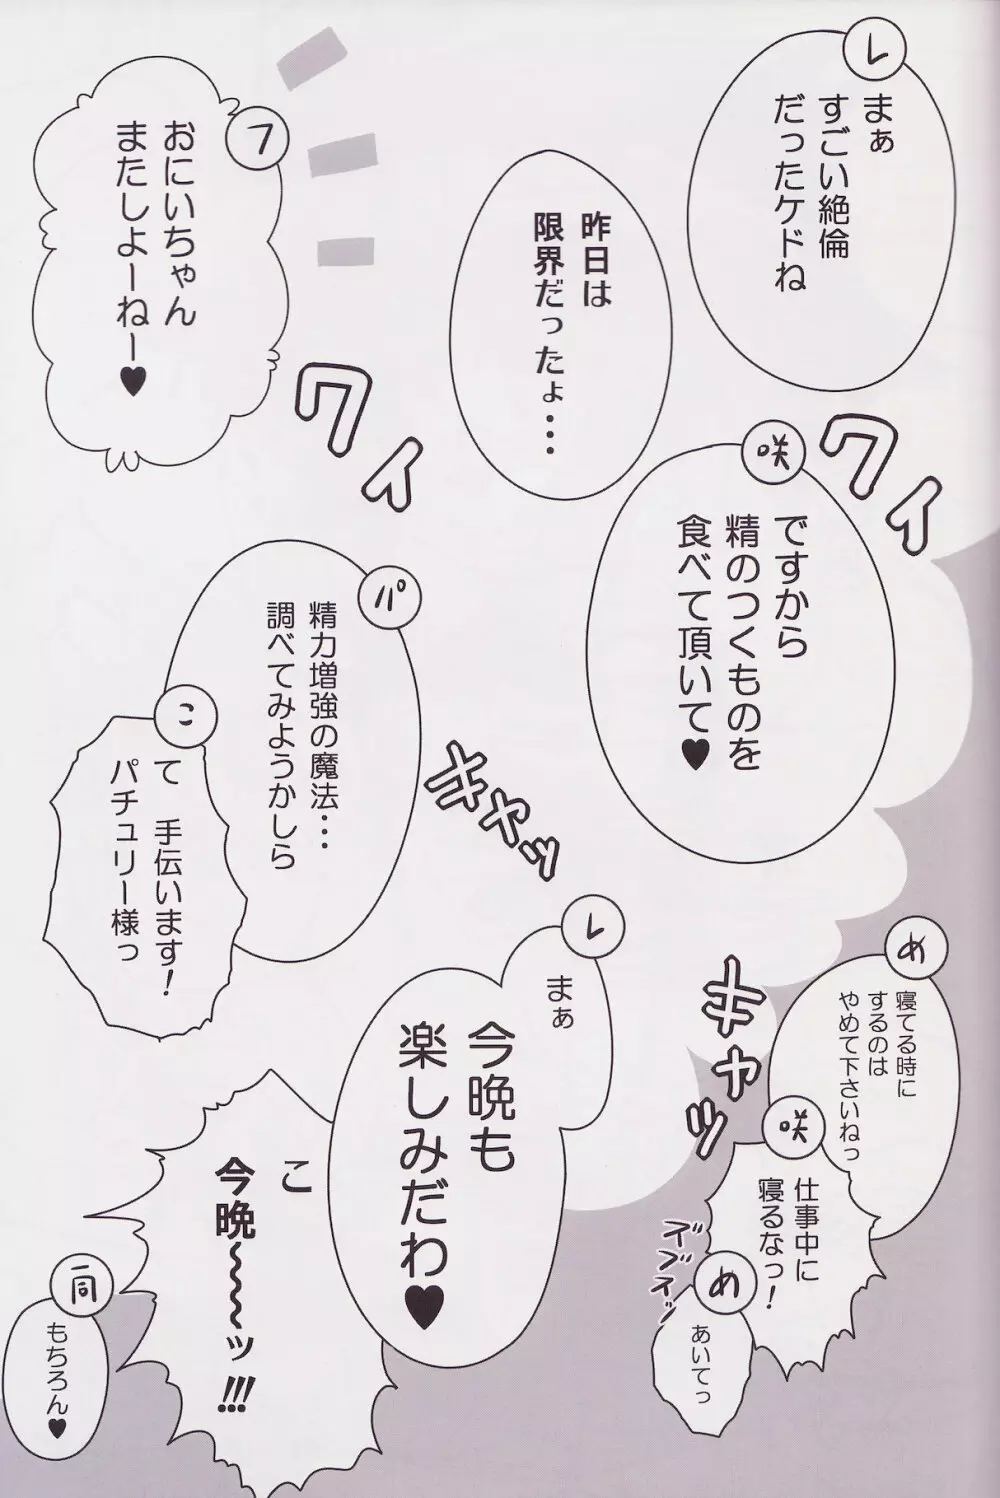 レ
まぁ
すごい絶倫
だったケドね
昨日は
限界だったょ…
フ
おにいちゃん
またしよーねー♥
ワイ
ワイ
咲
ですから
精のつくものを
食べて頂いて♥
パ
精力増強の魔法…
調べてみようかしら
こ
て 手伝います!
パチュリー様っ
キャッ
キャッ
め
寝てる時に
するのは
やめて下さいねっ
咲
仕事中に
寝るなっ!
ズブズブ
め
あいてっ
レ
まぁ
今晩も
楽しみだわ♥
こ
今晩~~~ッ!!!
一同
もちろん♥